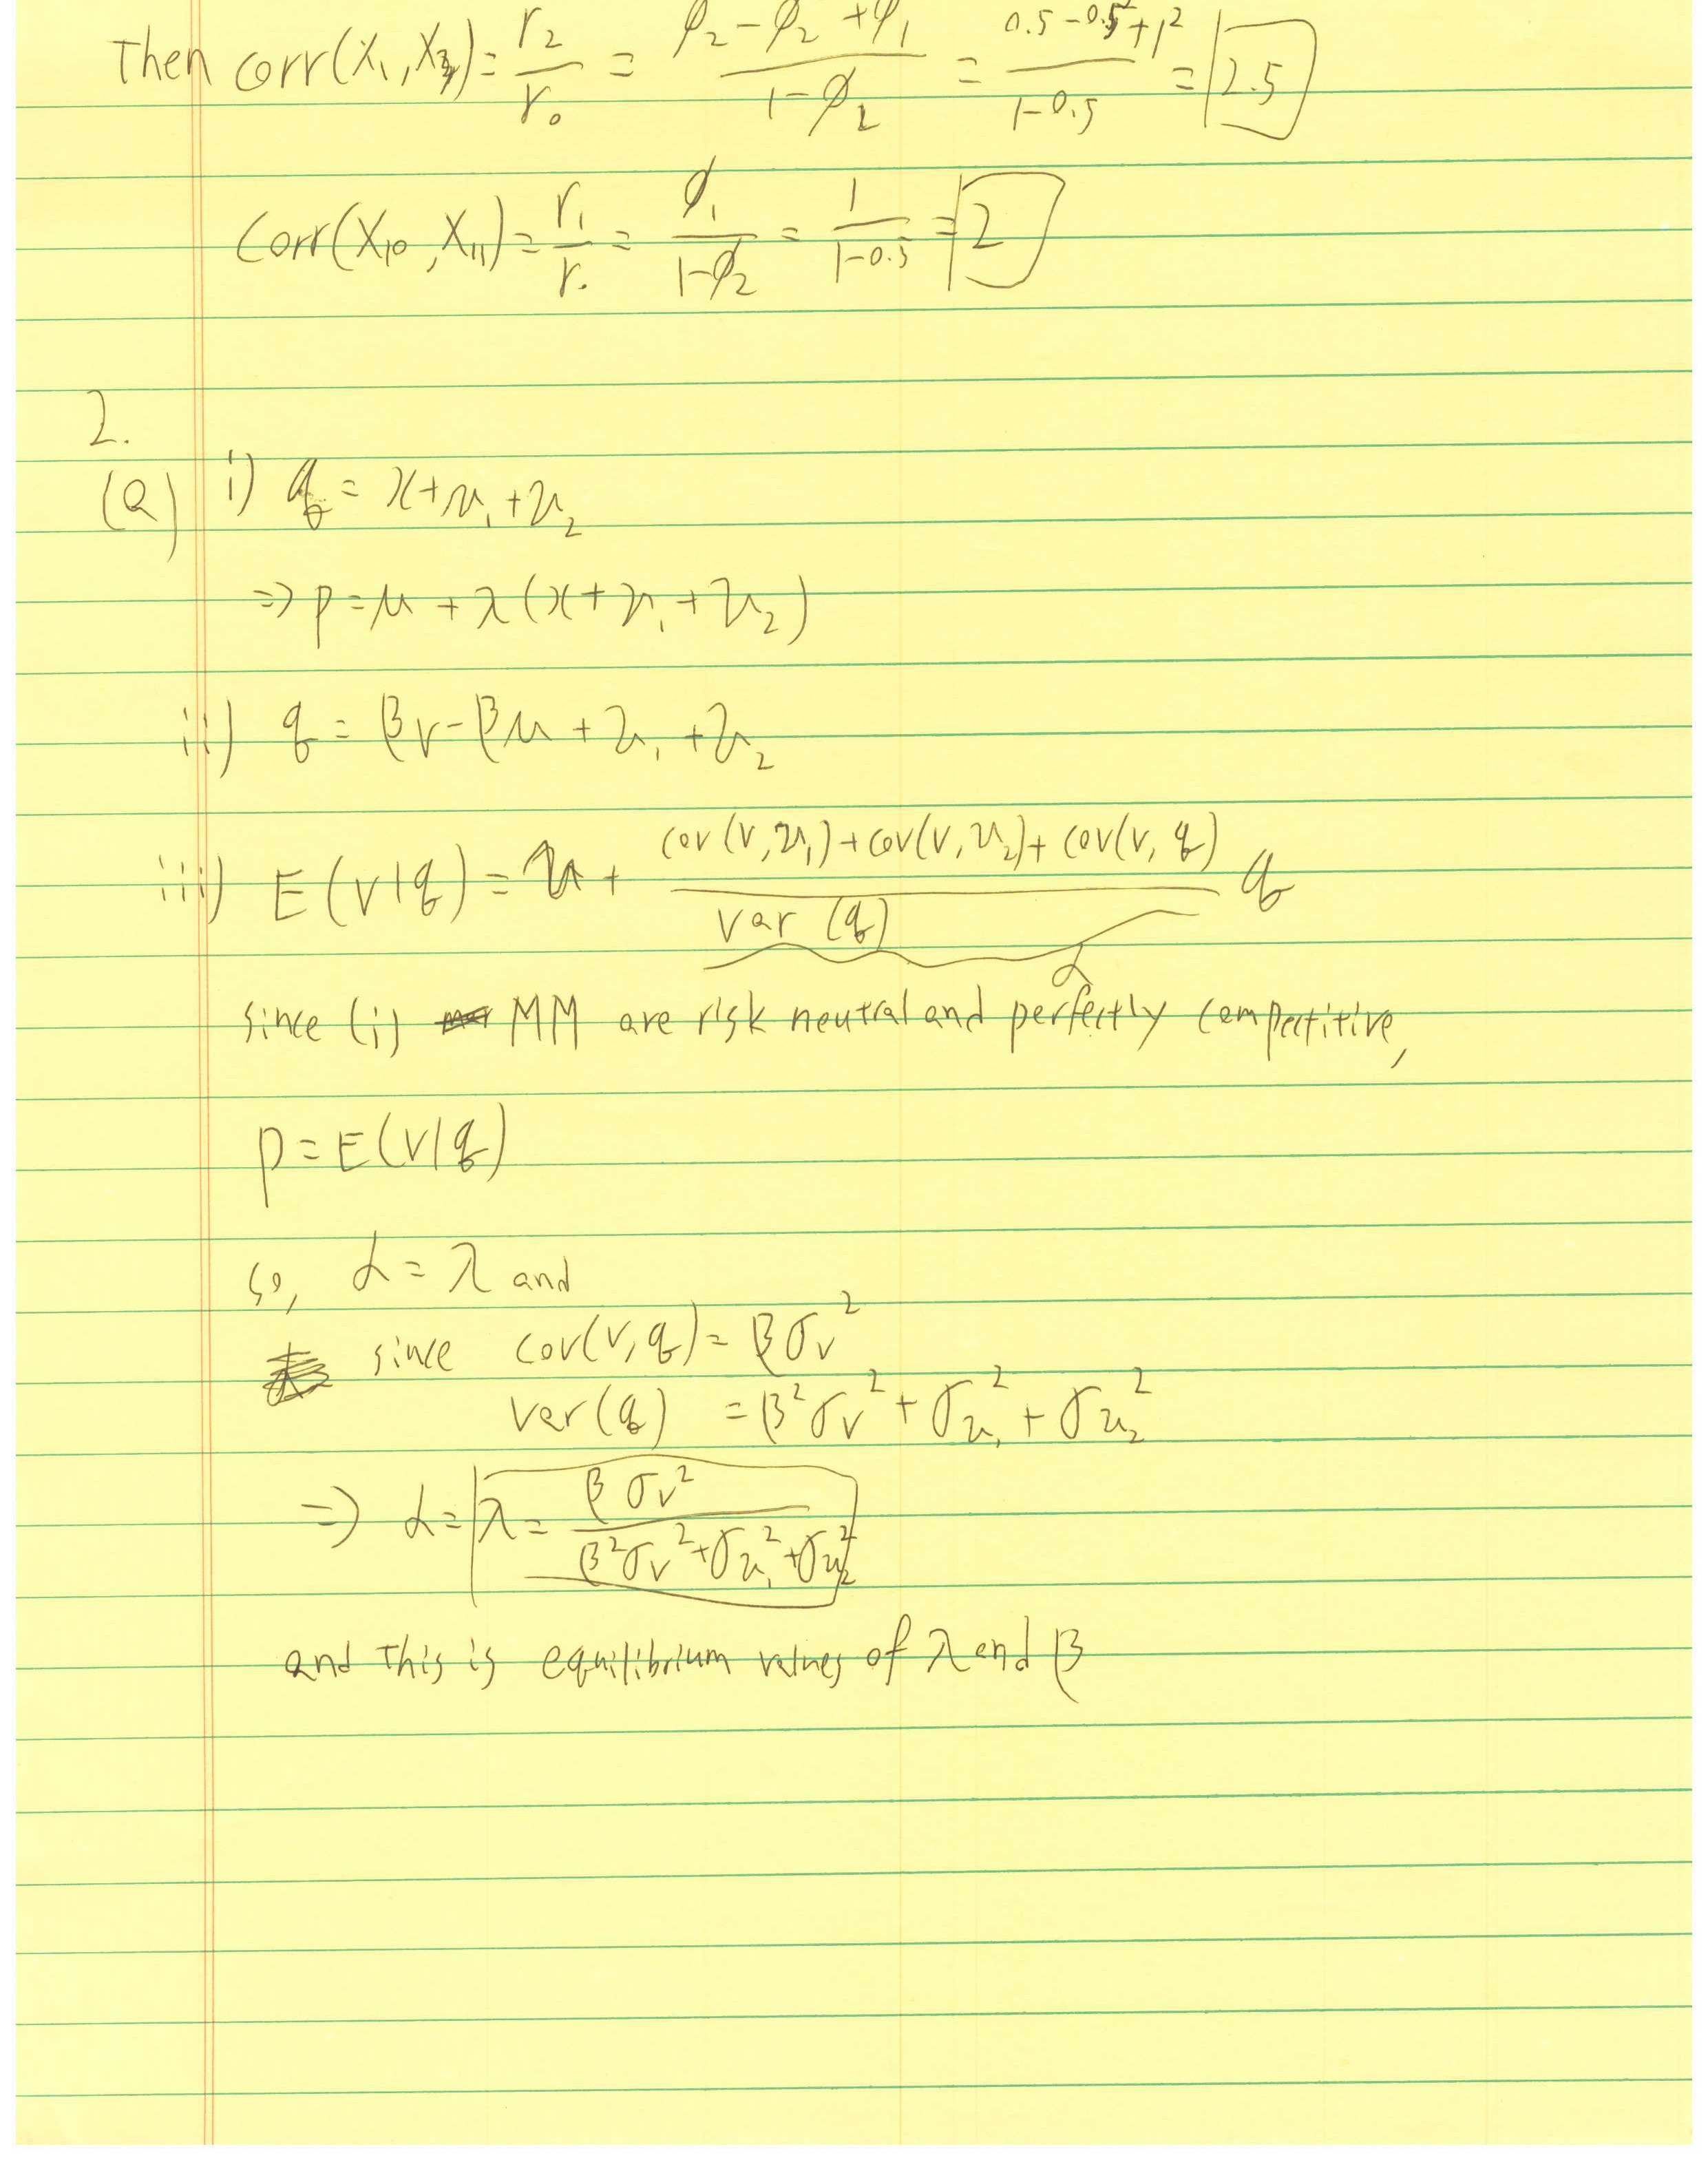 Then corr(X₁,X₃) = r₂/r₀ = (φ₂-φ₂²+φ₁²)/(1-φ₂) = (0.5-0.5²+1²)/(1-0.5) = 2.5
Corr(X₁₀,X₁₁) = r₁/r₀ = φ₁/(1-φ₂) = 1/(1-0.5) = 2
2.
(a) i) q = x+u₁+u₂
⇒ p = μ + λ(x+u₁+u₂)
ii) q = βv-βμ+u₁+u₂
iii) E(v|q) = μ + (cov(v,u₁)+cov(v,u₂)+cov(v,q))/var(q) q
α
since (i) MM are risk neutral and perfectly compectitive,
p=E(v|q)
so, α=λ and
since cov(v,q) = βσv²
var(q) = β²σv²+σu₁²+σu₂²
⇒ α=λ= βσv²/(β²σv²+σu₁²+σu₂²)
and this is equilibrium values of λ and β